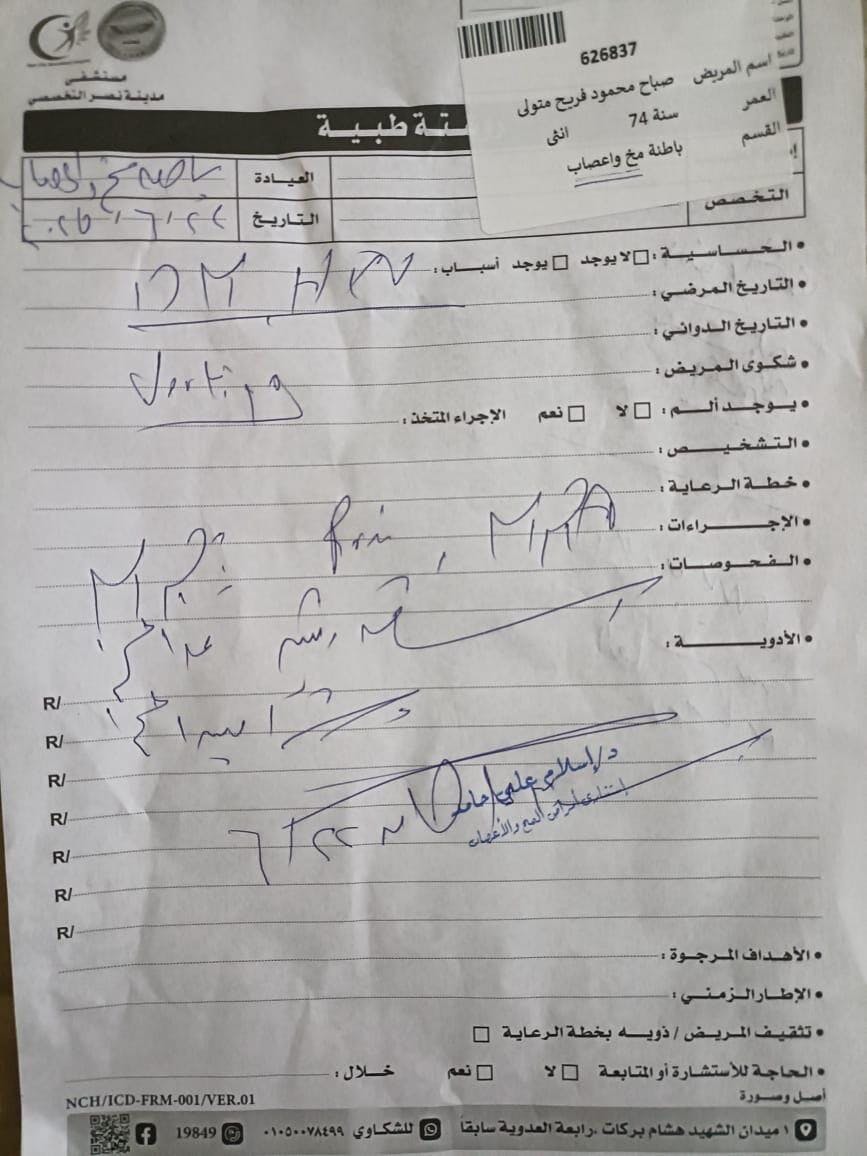 626837
اسم المريض صباح محمود فريح متولى
العمر 74 سنة انثى
القسم باطنة مخ واعصاب
مستشفى
مدينة نصر التخصصي
طبية
العيادة باطنه مخ واعصاب
التخصص
التاريخ
• الحساسية : لا يوجد يوجد أسباب :
DM, HTN
• التاريخ المرضي :
• التاريخ الدوائي :
• شكوى المريض :
Vertigo
• يوجد ألم : لا نعم الإجراء المتخذ :
• التشخيص :
• خطة الرعاية :
• الإجراءات :
MRI Brain, MRA
• الفحوصات :
• الأدوية :
R/
R/
R/
د/ إسلام علي حامد
استشاري أمراض المخ والأعصاب
R/
R/
R/
R/
• الأهداف المرجوة :
• الإطار الزمني :
• تثقيف المريض / ذويه بخطة الرعاية
• الحاجة للأستشارة أو المتابعة لا نعم خلال :
أصل وصورة
NCH/ICD-FRM-001/VER.01
١ ميدان الشهيد هشام بركات ،رابعة العدوية سابقاً للشكاوي ٠١٠٥٠٠٧٨٤٩٩ 19849